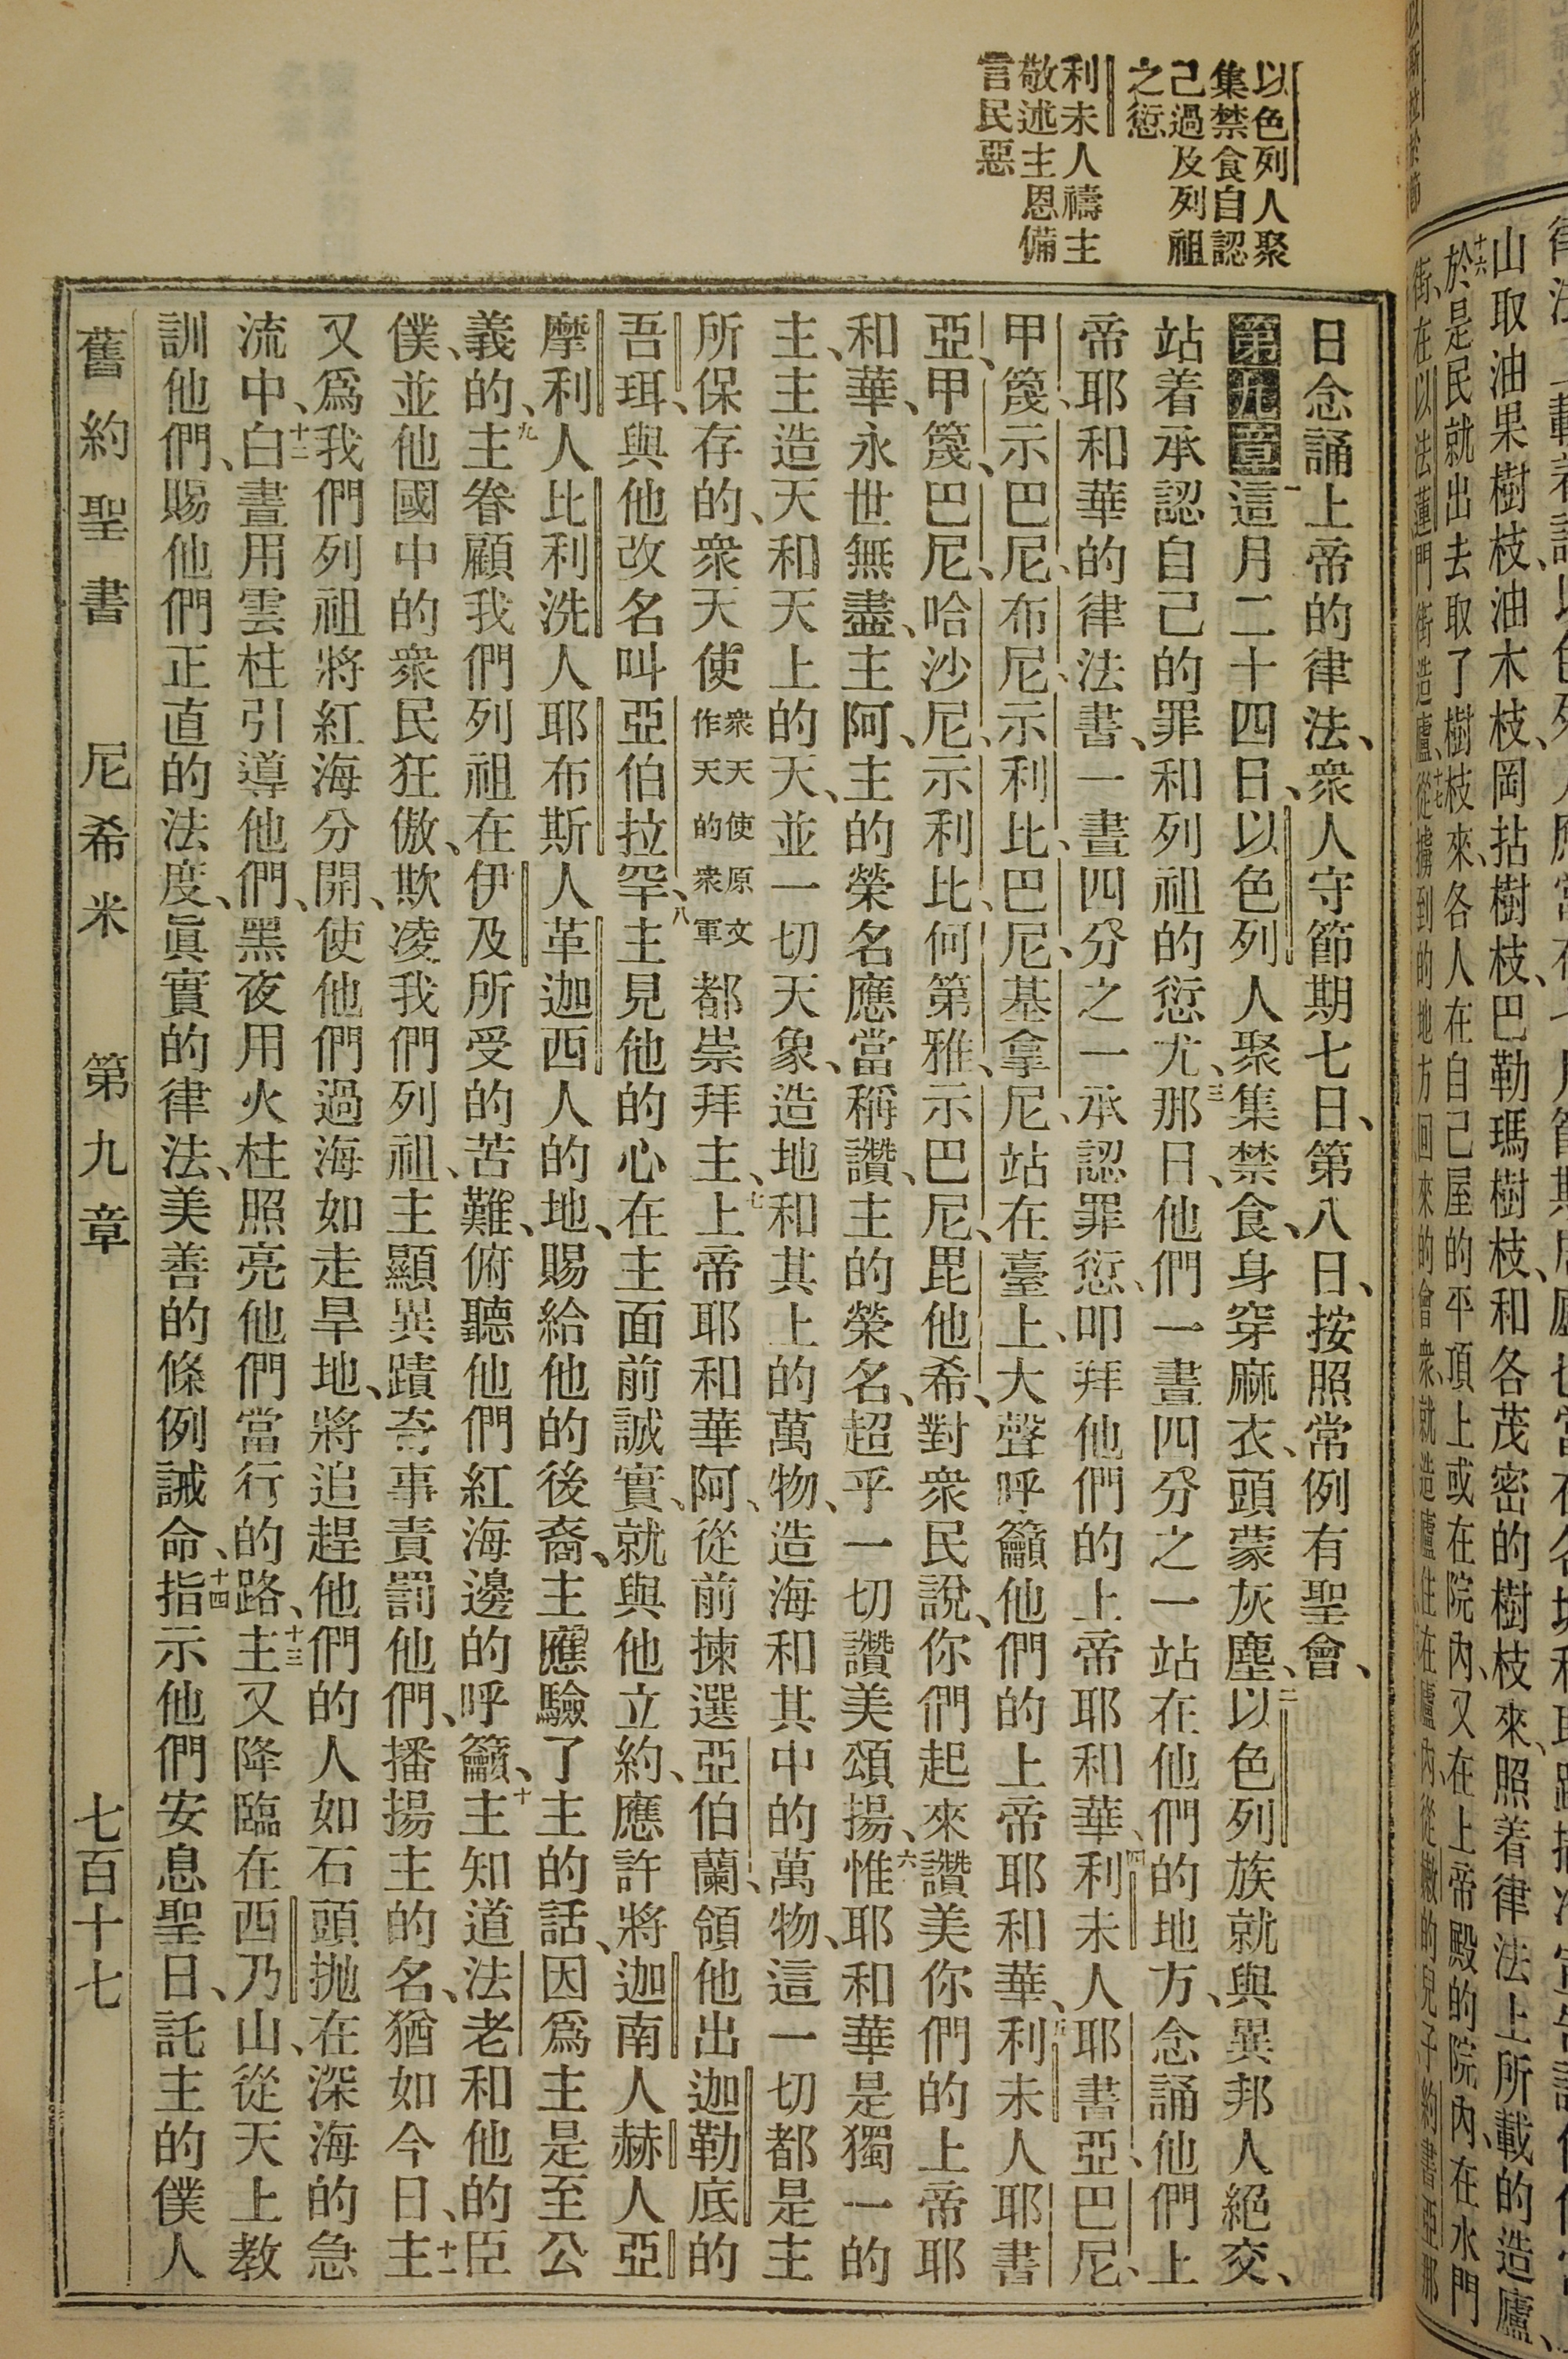 以色列人聚
集禁食自認
己過及列祖
之愆
利未人禱主
敬述主恩備
言民惡
日念誦上帝的律法、衆人守節期七日、第八日、按照常例有聖會、
第九章 一這月二十四日、以色列人聚集禁食、身穿麻衣、頭蒙灰塵、二以色列族就與異邦人絕交、
站着承認自己的罪和列祖的愆尤、三那日、他們一晝四分之一站在他們的地方、念誦他們上
帝耶和華的律法書、一晝四分之一承認罪愆、叩拜他們的上帝耶和華、四利未人耶書亞、巴尼、
甲篾、示巴尼、布尼、示利比、巴尼、基拿尼、站在臺上、大聲呼籲他們的上帝耶和華、五利未人耶書
亞、甲篾、巴尼、哈沙尼、示利比、何第雅、示巴尼、毘他希、對衆民說、你們起來讚美你們的上帝耶
和華、永世無盡、主阿、主的榮名應當稱讚、主的榮名、超乎一切讚美頌揚、六惟耶和華是獨一的
主、主造天和天上的天、並一切天象、造地和其上的萬物、造海和其中的萬物、這一切都是主
所保存的、衆天使衆天使原文作天的衆軍都崇拜主、七上帝耶和華阿、從前揀選亞伯蘭、領他出迦勒底的
吾珥、與他改名叫亞伯拉罕、八主見他的心在主面前誠實、就與他立約、應許將迦南人赫人亞
摩利人比利洗人耶布斯人革迦西人的地、賜給他的後裔、主應驗了主的話、因爲主是至公
義的、九主眷顧我們列祖在伊及所受的苦難、俯聽他們紅海邊的呼籲、十主知道法老和他的臣
僕、並他國中的衆民狂傲、欺凌我們列祖、主顯異蹟奇事責罰他們、播揚主的名、猶如今日、十一主
又爲我們列祖將紅海分開、使他們過海如走旱地、將追趕他們的人如石頭拋在深海的急
流中、十二白晝用雲柱引導他們、黑夜用火柱照亮他們當行的路、十三主又降臨在西乃山、從天上教
訓他們、賜他們正直的法度、眞實的律法、美善的條例誡命、十四指示他們安息聖日、託主的僕人
舊約聖書 尼希米 第九章 七百十七